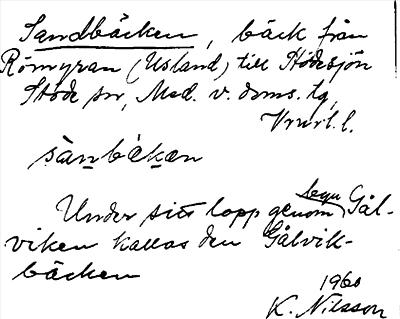 Sandbäcken, bäck från
Römyran (Usland) till Stödesjön
Stöde sn, Med. v. doms. tg,
Vnrl. l.
sànbɛ̀kæn
Under sitt lopp genom byn Gål-
viken kallas den Gålvik-
bäcken
1960
K. Nilsson